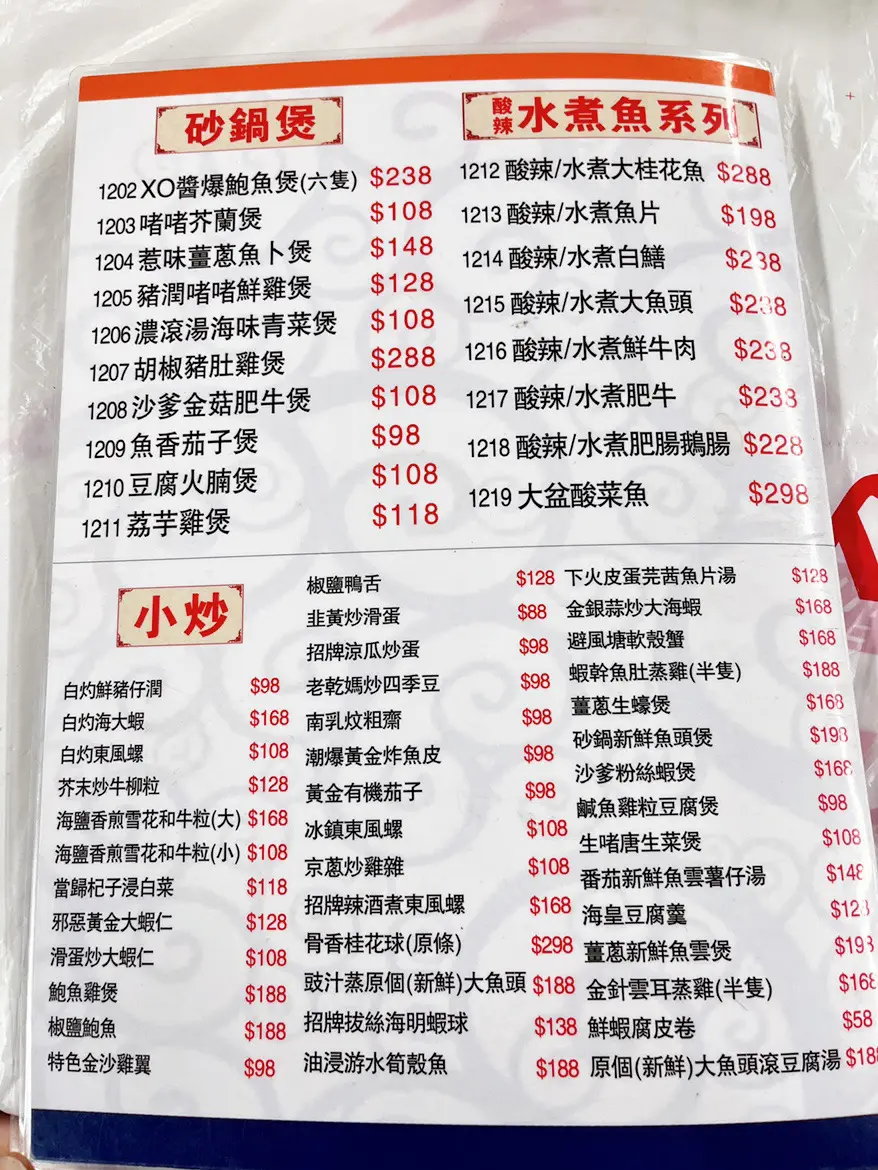 砂鍋煲
1202 XO醬爆鮑魚煲(六隻) $238
1203 啫啫芥蘭煲 $108
1204 惹味薑蔥魚卜煲 $148
1205 豬潤啫啫鮮雞煲 $128
1206 濃滾湯海味青菜煲 $108
1207 胡椒豬肚雞煲 $288
1208 沙爹金菇肥牛煲 $108
1209 魚香茄子煲 $98
1210 豆腐火腩煲 $108
1211 荔芋雞煲 $118
酸辣 水煮魚系列
1212 酸辣/水煮大桂花魚 $288
1213 酸辣/水煮魚片 $198
1214 酸辣/水煮白鱔 $238
1215 酸辣/水煮大魚頭 $238
1216 酸辣/水煮鮮牛肉 $238
1217 酸辣/水煮肥牛 $238
1218 酸辣/水煮肥腸鵝腸 $228
1219 大盆酸菜魚 $298
小炒
白灼鮮豬仔潤 $98
白灼海大蝦 $168
白灼東風螺 $108
芥末炒牛柳粒 $128
海鹽香煎雪花和牛粒(大) $168
海鹽香煎雪花和牛粒(小) $108
當歸杞子浸白菜 $118
邪惡黃金大蝦仁 $128
滑蛋炒大蝦仁 $108
鮑魚雞煲 $188
椒鹽鮑魚 $188
特色金沙雞翼 $98
椒鹽鴨舌 $128
韭黃炒滑蛋 $88
招牌涼瓜炒蛋 $98
老乾媽炒四季豆 $98
南乳炆粗齋 $98
潮爆黃金炸魚皮 $98
黃金有機茄子 $98
冰鎮東風螺 $108
京蔥炒雞雜 $108
招牌辣酒煮東風螺 $168
骨香桂花球(原條) $298
豉汁蒸原個(新鮮)大魚頭 $188
招牌拔絲海明蝦球 $138
油浸游水筍殼魚 $188
下火皮蛋芫茜魚片湯 $128
金銀蒜炒大海蝦 $168
避風塘軟殼蟹 $168
蝦幹魚肚蒸雞(半隻) $188
薑蔥生蠔煲 $168
砂鍋新鮮魚頭煲 $198
沙爹粉絲蝦煲 $168
鹹魚雞粒豆腐煲 $98
生啫唐生菜煲 $108
番茄新鮮魚雲薯仔湯 $148
海皇豆腐羹 $128
薑蔥新鮮魚雲煲 $198
金針雲耳蒸雞(半隻) $168
鮮蝦腐皮卷 $58
原個(新鮮)大魚頭滾豆腐湯 $188